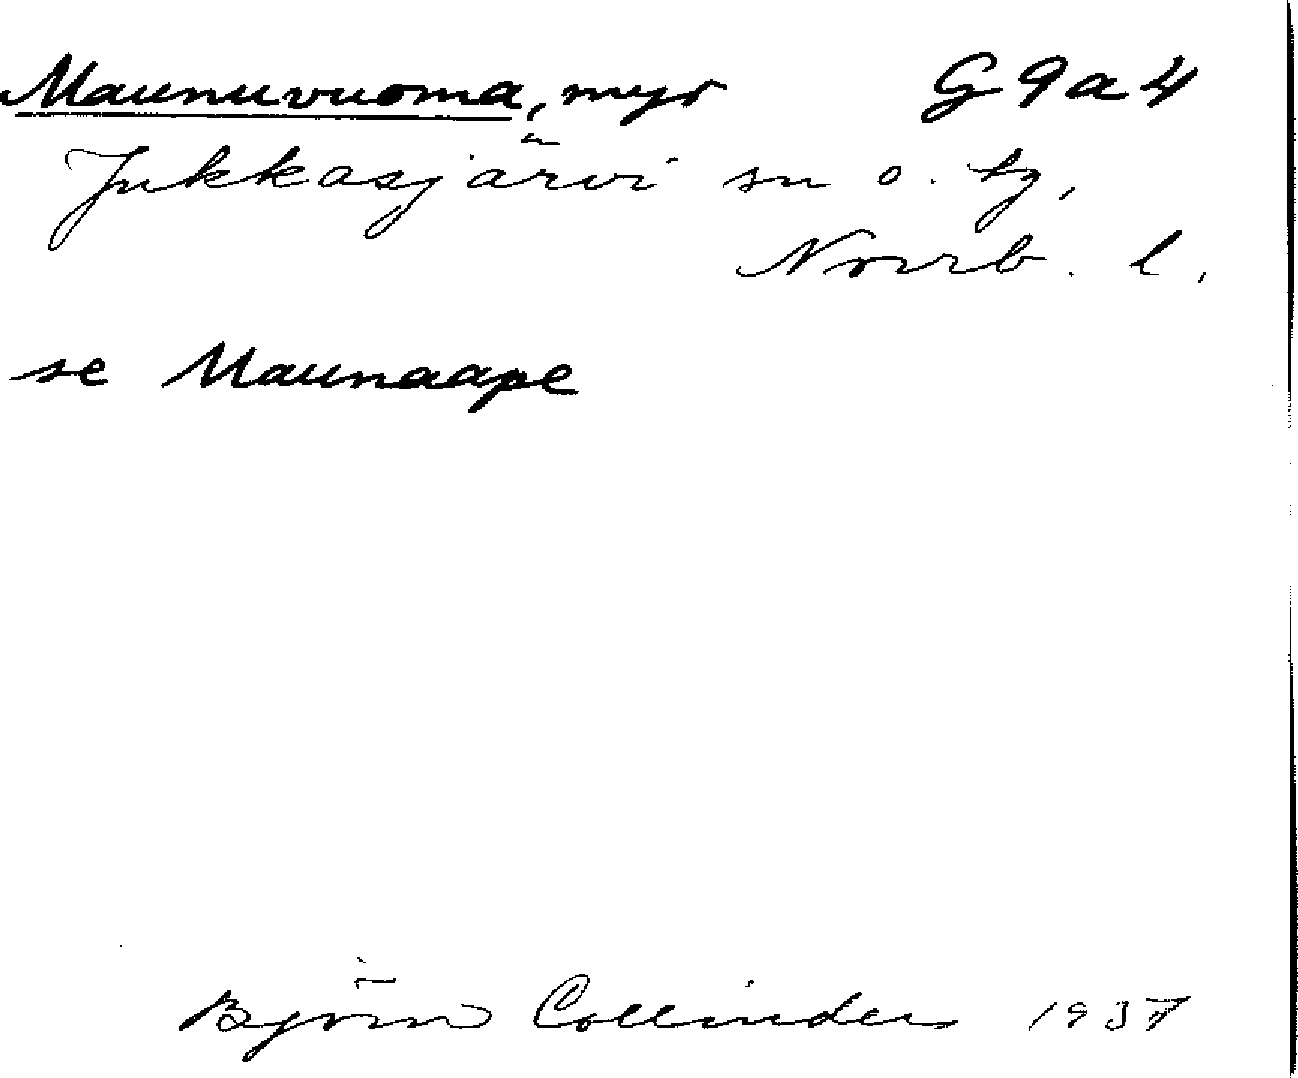 Maunuvuoma, myr G9a4
Jukkasjärvi sn o. tg,
Norrb. l.
se Maunaape
Björn Collinder 1937